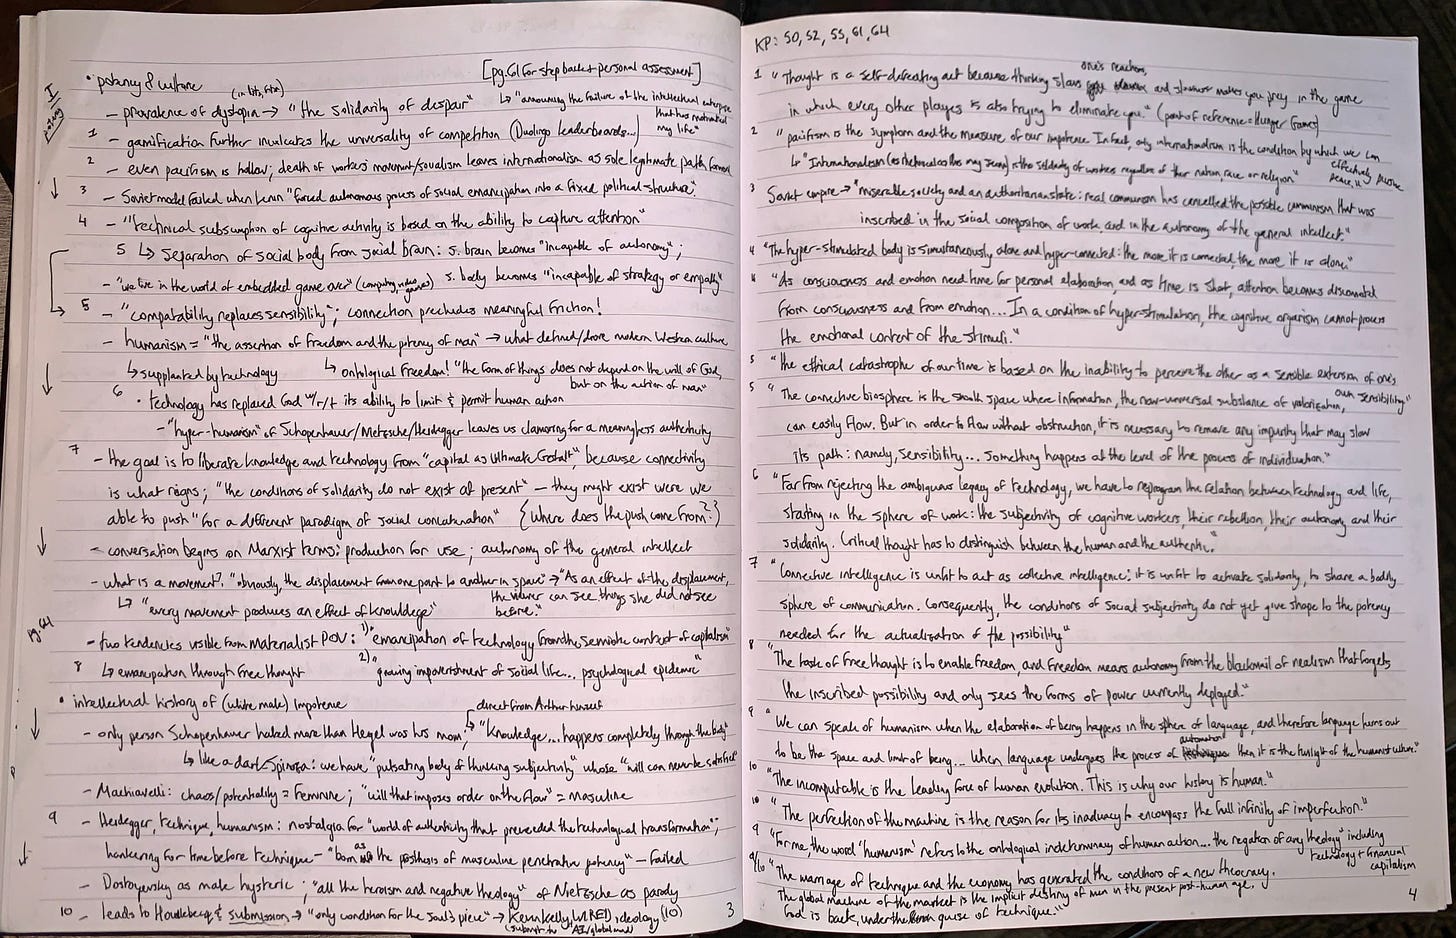 [pg.61 for step back + personal assessment]
I
potency
• potency & culture
(in lit, film)
– prevalence of dystopia → "the solidarity of despair"
↳ "announcing the failure of the intellectual enterprise
that has motivated
my life"
1 – gamification further inculcates the universality of competition (Duolingo leaderboards...)
2 – even pacifism is hollow; death of workers movement/socialism leaves internationalism as sole legitimate path forward
3 – Soviet model failed when Lenin "forced autonomous process of social emancipation into a fixed political structure."
4 – "technical subsumption of cognitive activity is based on the ability to capture attention"
5 ↳ separation of social body from social brain: s. brain becomes "incapable of autonomy";
s. body becomes "incapable of strategy or empathy"
– "we live in the world of embedded game over" (computing, video games)
5 – "compatability replaces sensibility"; connection precludes meaningful friction!
– humanism = "the assertion of freedom and the potency of man" → what defined/drove modern Western culture
↳ supplanted by technology
↳ ontological freedom! "the form of things does not depend on the will of God,
but on the action of man"
6 • technology has replaced God w/r/t its ability to limit & permit human action
– "hyper-humanism" of Schopenhauer/Nietzsche/Heidegger leaves us clamoring for a meaningless authenticity
7 – the goal is to liberate knowledge and technology from "capital as ultimate Gestalt", because connectivity
is what reigns; "the conditions of solidarity do not exist at present" – they might exist were we
able to push "for a different paradigm of social concatenation" {where does the push come from?}
– conversation begins on Marxist terms: production for use; autonomy of the general intellect
– what is a movement?: "obviously, the displacement from one part to another in space" → "As an effect of the displacement,
the viewer can see things she did not see
before."
↳ "every movement produces an effect of knowledge"
pg. 64
– two tendencies visible from materialist POV: 1) "emancipation of technology from the semiotic context of capitalism"
2) "growing impoverishment of social life... psychological epidemic"
8 ↳ emancipation through free thought
• intellectual history of (white male) impotence
direct from Arthur himself
– only person Schopenhauer hated more than Hegel was his mom; "Knowledge... happens completely through the body"
↳ like a dark Spinoza: we have "pulsating body of thinking subjectivity" whose "will can never be satisfied"
– Machiavelli: chaos/potentiality = feminine; "will that imposes order on the flow" = masculine
9 – Heidegger, technique, humanism: nostalgia for "world of authenticity that preceeded the technological transformation";
hankering for time before technique – "born as the prosthesis of masculine penetrative potency" – failed
– Dostoyevsky as male hysteric; "all the heroism and negative theology" of Nietzsche as parody
10 – leads to Houellebecq & submission → "only condition for the soul's peace" → Kevin Kelly, WIRED ideology (10)
(submit to AI/global mind)
3
KP: 50, 52, 55, 61, 64
one's reactions,
1 "Thought is a self-defeating act because thinking slows and slowness makes you prey in the game
in which every other player is also trying to eliminate you." (point of reference = Hunger Games)
2 "pacifism is the symptom and the measure of our impotence. In fact, only internationalism is the condition by which we can
effectively pursue
peace."
↳ "Internationalism (as theoretical as this may seem) is the solidarity of workers regardless of their nation, race or religion"
3 Soviet empire → "miserable society and an authoritarian state: real communism has cancelled the possible communism that was
inscribed in the social composition of work, and in the autonomy of the general intellect."
4 "The hyper-stimulated body is simultaneously alone and hyper-connected: the more it is connected, the more it is alone."
4 "As consciousness and emotion need time for personal elaboration, and as time is short, attention becomes disconnected
from consciousness and from emotion... In a condition of hyper-stimulation, the cognitive organism cannot process
the emotional content of the stimuli."
5 "the ethical catastrophe of our time is based on the inability to perceive the other as a sensible extension of one's
own sensibility"
5 "The connective biosphere is the smooth space where information, the now-universal substance of valorization,
can easily flow. But in order to flow without obstruction, it is necessary to remove any impurity that may slow
its path: namely, sensibility... something happens at the level of the process of individuation."
6 "Far from rejecting the ambiguous legacy of technology, we have to reprogram the relation between technology and life,
starting in the sphere of work: the subjectivity of cognitive workers, their rebellion, their autonomy and their
solidarity. Critical thought has to distinguish between the human and the authentic."
7 "Connective intelligence is unfit to act as collective intelligence: it is unfit to activate solidarity, to share a bodily
sphere of communication. Consequently, the conditions of social subjectivity do not yet give shape to the potency
needed for the actualization of the possibility"
8 "The task of free thought is to enable freedom, and freedom means autonomy from the blackmail of realism that forgets
the inscribed possibility and only sees the forms of power currently deployed."
9 "We can speak of humanism when the elaboration of being happens in the sphere of language, and therefore language turns out
to be the space and limit of being... When language undergoes the process of automation then it is the twilight of the humanist culture."
10 "The incomputable is the leading force of human evolution. This is why our history is human."
10 "The perfection of the machine is the reason for its inaduacy to encompass the full infinity of imperfection."
9 "For me, the word 'humanism' refers to the ontological indeterminacy of human action... the negation of any theology" including
technology + financial
capitalism
9/10 "The marriage of technique and the economy has generated the conditions of a new theocracy.
The global machine of the market is the implicit destiny of men in the present post-human age.
God is back, under the guise of technique."
4